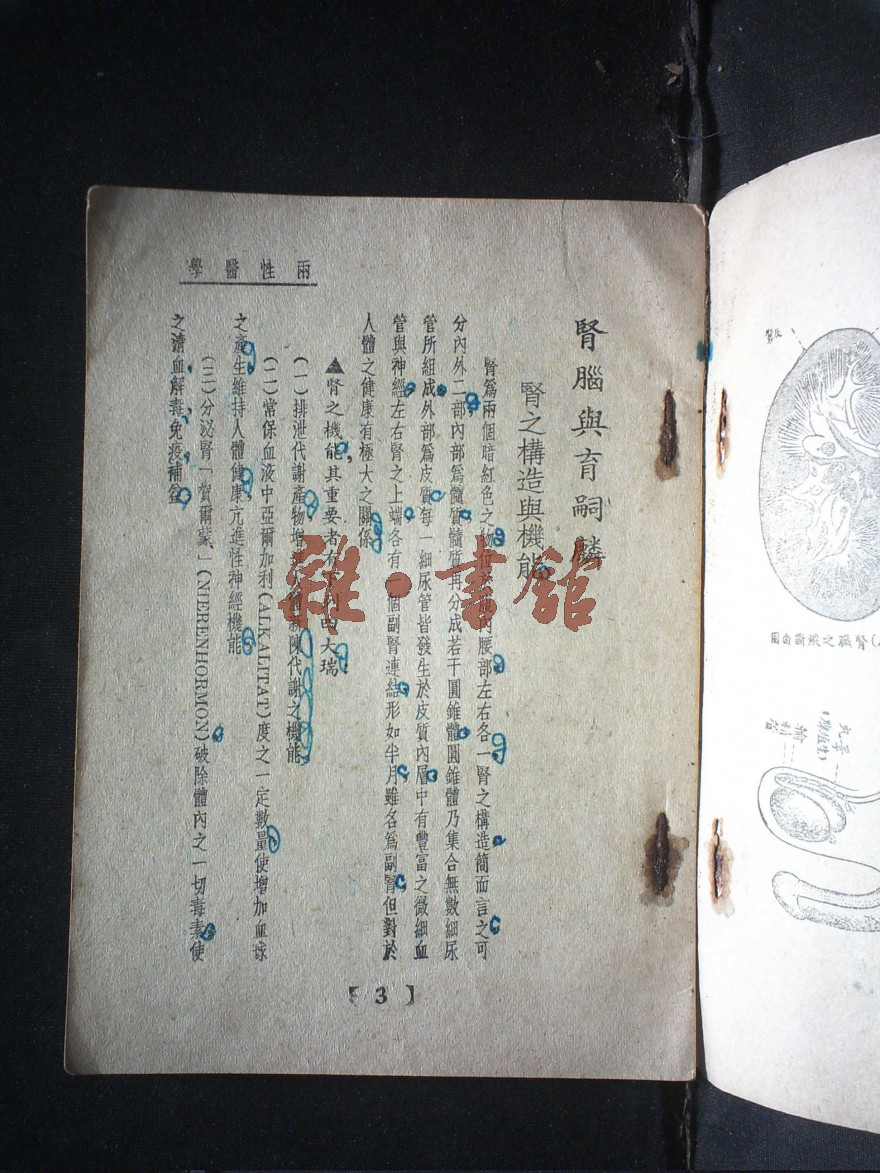 兩性醫學
腎腦與育嗣
腎之構造與機能
腎爲兩個暗紅色之物位 腰部左右各一腎之構造簡而言之可
分內外二部內部爲髓質髓質再分成若干圓錐體圓錐體乃集合無數細尿
管所組成外部爲皮質每一細尿管皆發生於皮質內層中有豐富之微細血
管與神經左右腎之上端各有一個副腎連結形如半月雖名爲副腎但對於
人體之健康有極大之關係
▲腎之機能其重要者有下列四大瑞
(一)排泄代謝產物增 陳代謝之機能
(二)常保血液中亞爾加利(ALKALITAT)度之一定數量使增加血球
之產生維持人體健康亢進性神經機能
(三)分泌腎「賀爾蒙」(NIERENHORMON)破除體內之一切毒素使
之清血解毒免疫補益
【3】
雜·書館
腎臟之縱斷面圖
睪丸
(生殖腺)
輸精管